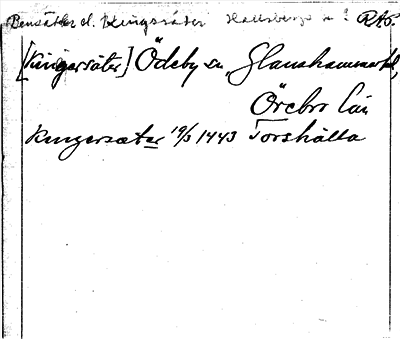 Bensäter el. Klingsäter Hallsbergs sn? RAP.
[Kingersäter] Ödeby sn, Glanshammars hd,
Örebro län
Kengersæter 19/3 1443 Torshälla